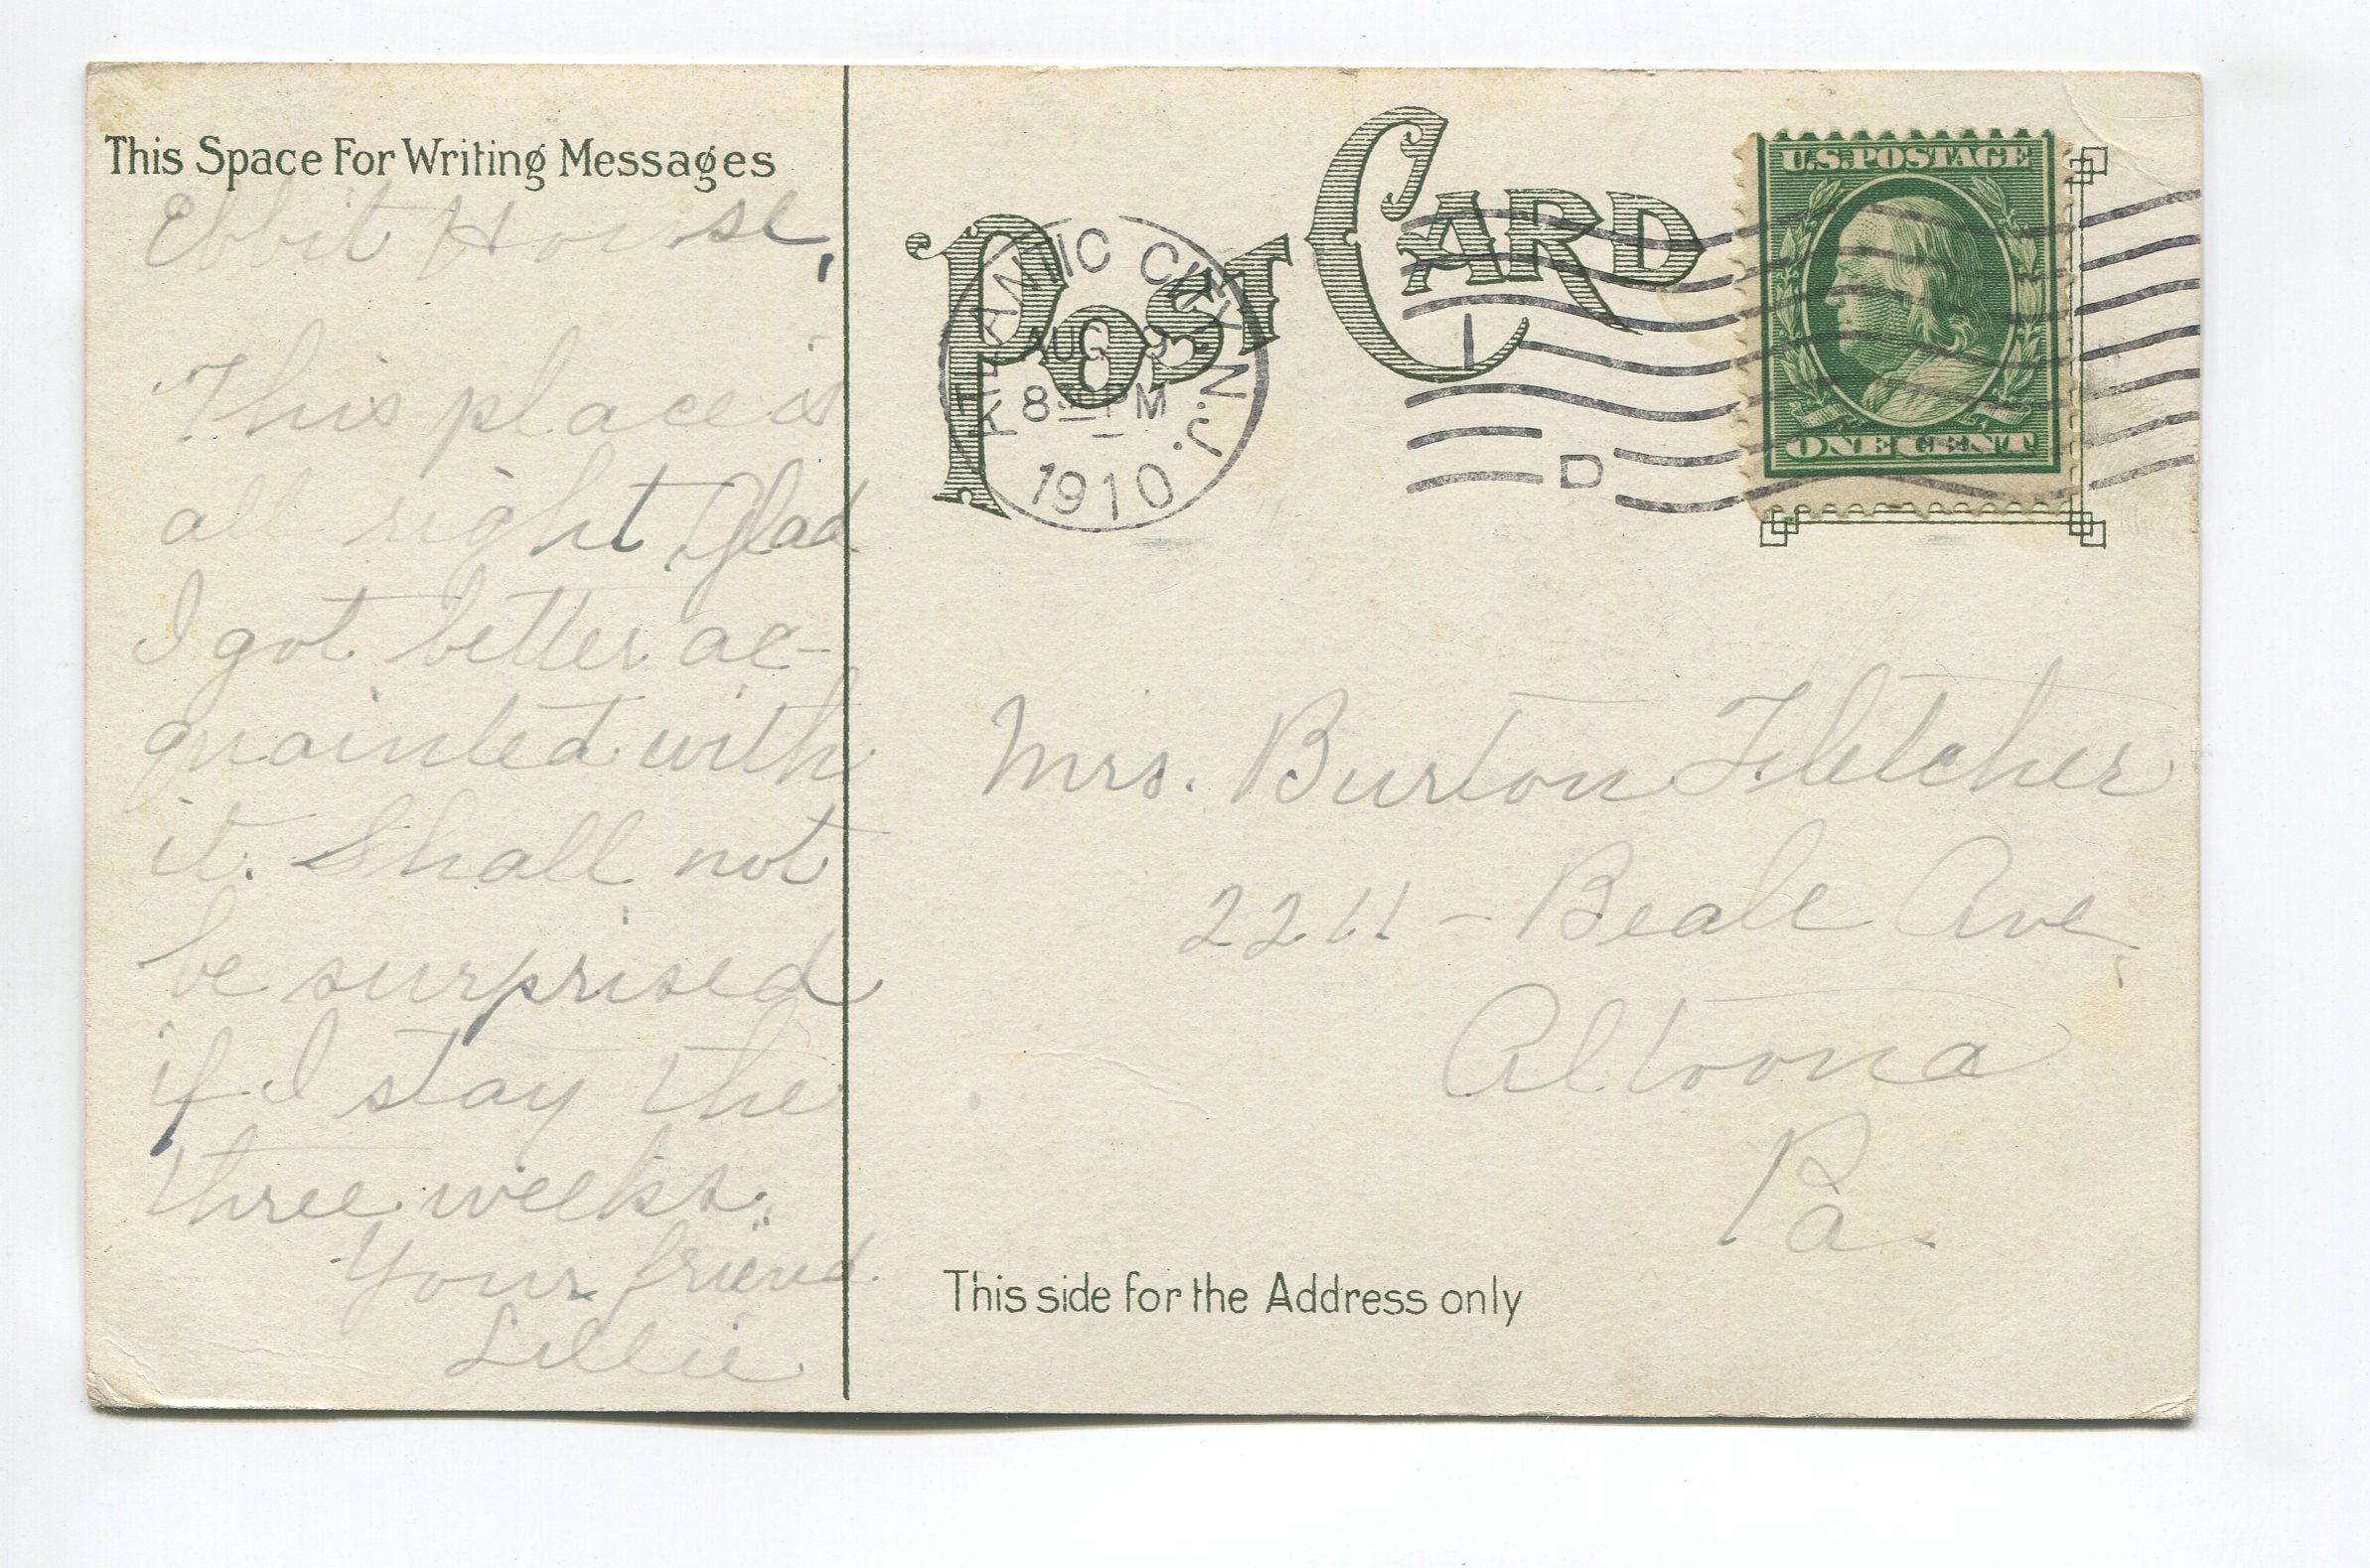 This Space For Writing Messages
Ebbit House,
This place is
all right. Glad
I got better ac-
quainted with
it. Shall not
be surprised
if I stay the
three weeks.
Your friend
Lillie
POST CARD
ATLANTIC CITY, N.J.
AUG
8 PM
1910
1
D
U.S. POSTAGE
ONE CENT
Mrs. Burton Fletcher
2211 - Beale Ave,
Altoona
Pa.
This side for the Address only